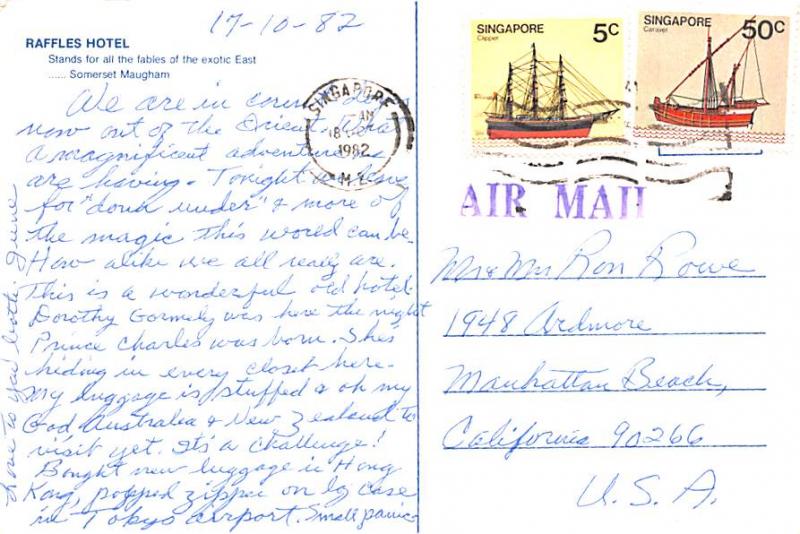 17-10-82
RAFFLES HOTEL
Stands for all the fables of the exotic East
...... Somerset Maugham
We are in
now out of the Orient. What
a magnificent adventure we
are having. Tonight we leave
for "down under" & more of
the magic this world can be.
How alike we all really are.
This is a wonderful old hotel.
Dorothy Gormely was here the night
Prince Charles was born. She's
hiding in every closet here.
My luggage is stuffed & oh my
God Australia & New Zealand to
visit yet. It's a challenge!
Bought new luggage in Hong
Kong, popped zipper on lg case
in Tokyo airport. Small panic.
Love to you both. June
SINGAPORE
Clipper
5c
SINGAPORE
Caravel
50c
SINGAPORE
1982
AIR MAIL
Mr & Mrs Ron Rowe
1948 Ardmore
Manhattan Beach,
California 90266
U.S.A.